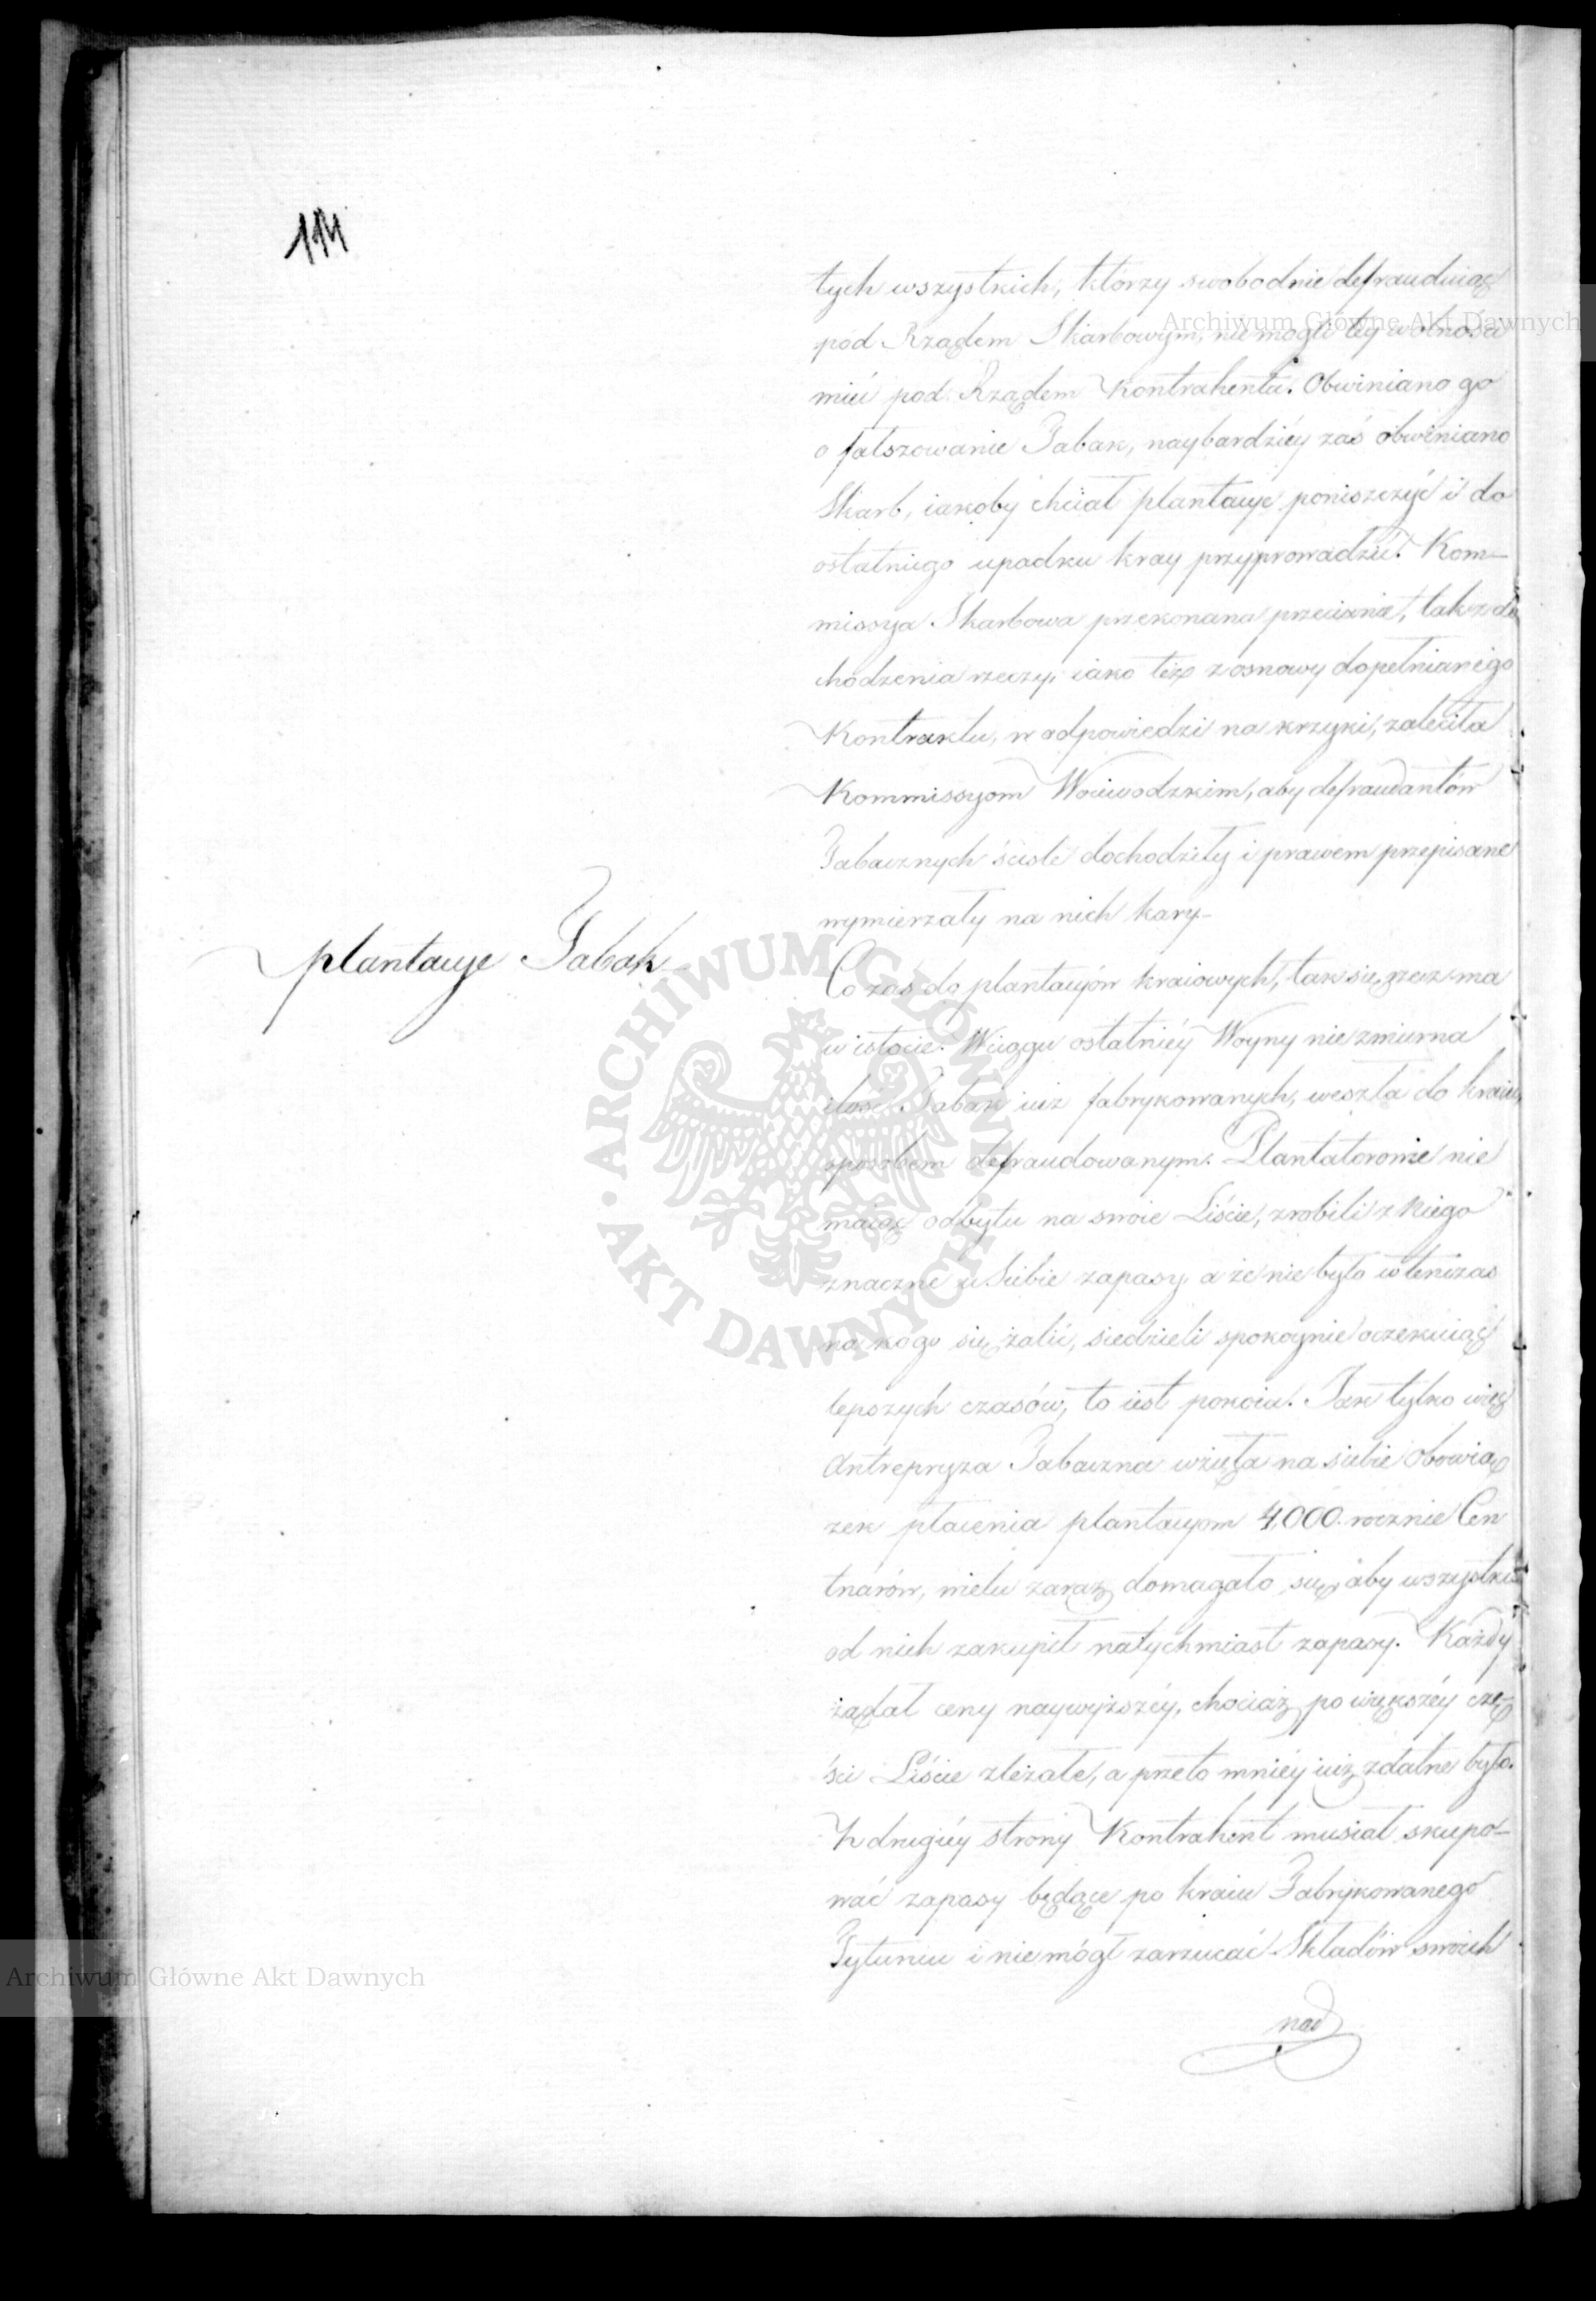 114
tych wszystkich, którzy swobodnie defrauduiąc
pod Rządem Skarbowym, nie mogli tey wolności
mieć pod Rządem Kontrahenta. Obwiniano go
o fałszowanie Tabak, naybardziéy zaś obwiniano
Skarb, iakoby chciał plantacye poniszczyć i do
ostatniego upadku kray przyprowadzić. Kom-
missya Skarbowa przekonana przeciwnie, tak z do
chodzenia rzeczy, iako też z osnowy dopełnianego
Kontraktu, w odpowiedzi na krzyki, zaleciła
Kommissyom Woiewodzkim, aby defraudantów
Tabacznych ściśle dochodziły i prawem przepisane
wymierzały na nich kary-
plantacye Tabak
Co zaś do plantacyów kraiowych, tak się rzecz ma
w istocie. W ciągu ostatniéy Woyny niezmierna
ilość Tabak iuż fabrykowanych, weszła do kraiu,
sposobem defraudowanym. Plantatorowie nie
maiąc odbytu na swoie Liście, zrobili z niego
znaczne u siebie zapasy, a że nie było wtenczas
na kogo się żalić, siedzieli spokoynie oczekuiąc
lepszych czasów, to iest pokoiu. Jak tylko więc
Antrepryza Tabaczna wzięła na siebie obowią
zek płacenia plantacyom 4,000 rocznie Cen
tnarów, wielu zaraz domagało się, aby wszystkie
od nich zakupił natychmiast zapasy. Każdy
żądał ceny naywyższéy, chociaż po większéy czę-
ści Liście zleżałe, a przeto mniéy iuż zdatne było.
Z drugiéy strony Kontrahent musiał skupo-
wać zapasy będące po kraiu Fabrykowanego
Tytuniu i nie mógł zarzucać Składów swoich
nad
Archiwum Główne Akt Dawnych
Archiwum Główne Akt Dawnych
ARCHIWUM GŁÓWNE · AKT DAWNYCH ·